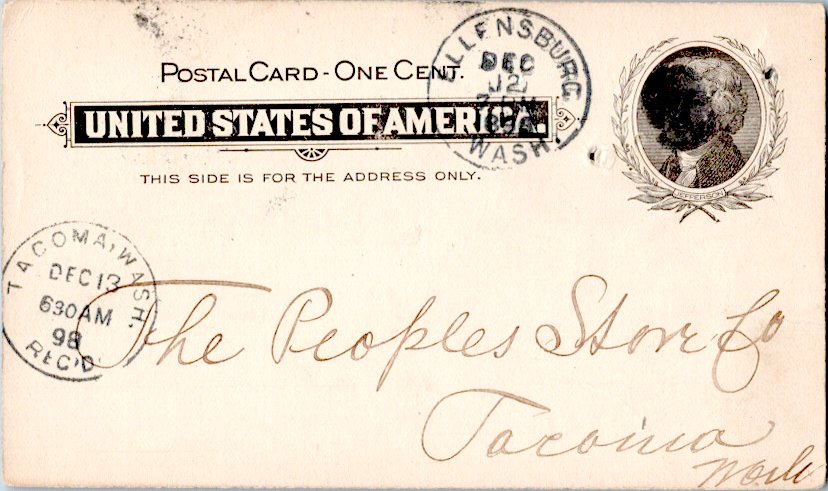 POSTAL CARD - ONE CENT.
UNITED STATES OF AMERICA.
THIS SIDE IS FOR THE ADDRESS ONLY.
ELLENSBURG
DEC
12
WASH.
JEFFERSON
TACOMA, WASH.
DEC 13
630 AM
98
REC'D
The Peoples Store Co
Tacoma
Wash